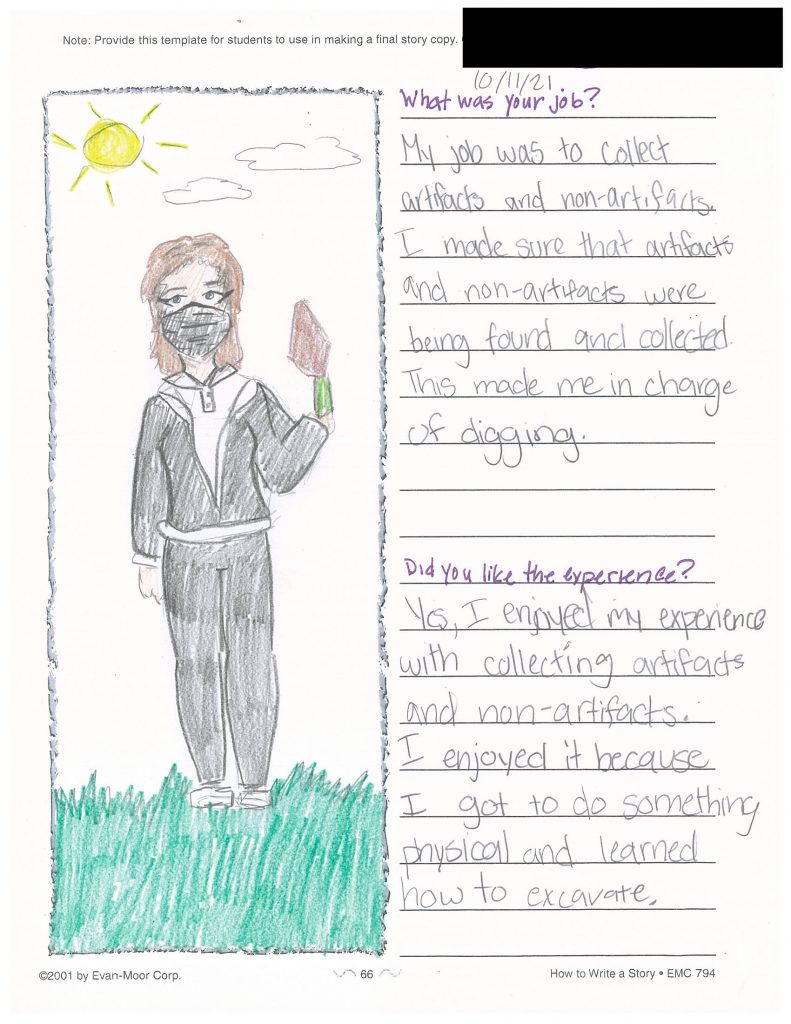 Note: Provide this template for students to use in making a final story copy.
10/11/21
What was your job?
My job was to collect
artifacts and non-artifacts.
I made sure that artifacts
and non-artifacts were
being found and collected.
This made me in charge
of digging.
Did you like the experience?
Yes, I enjoyed my experience
with collecting artifacts
and non-artifacts.
I enjoyed it because
I got to do something
physical and learned
how to excavate.
©2001 by Evan-Moor Corp.
66
How to Write a Story • EMC 794